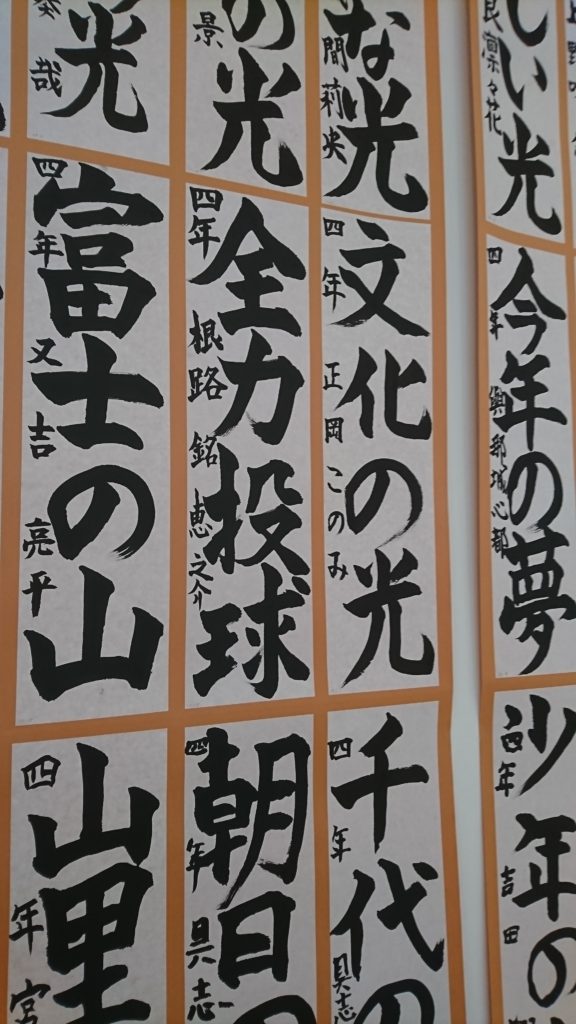 しい光
良凛々花
な光
間莉央
の光
景
光
哉
今年の夢
四年 與那城心都
文化の光
四年 正岡このみ
全力投球
四年 根路銘恵之介
富士の山
四年 又吉亮平
少年の
四年 吉田
千代の
四年 具志
朝日の
四年 具志
山里
四年 宮